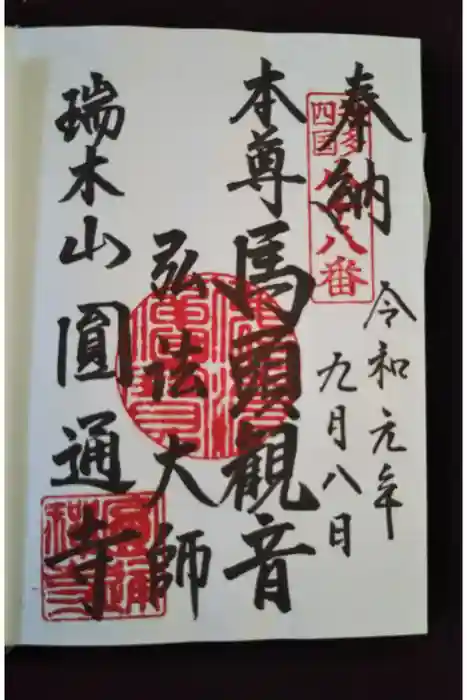 奉納
令和元年
九月八日
本尊馬頭観音
弘法大師
瑞木山圓通寺